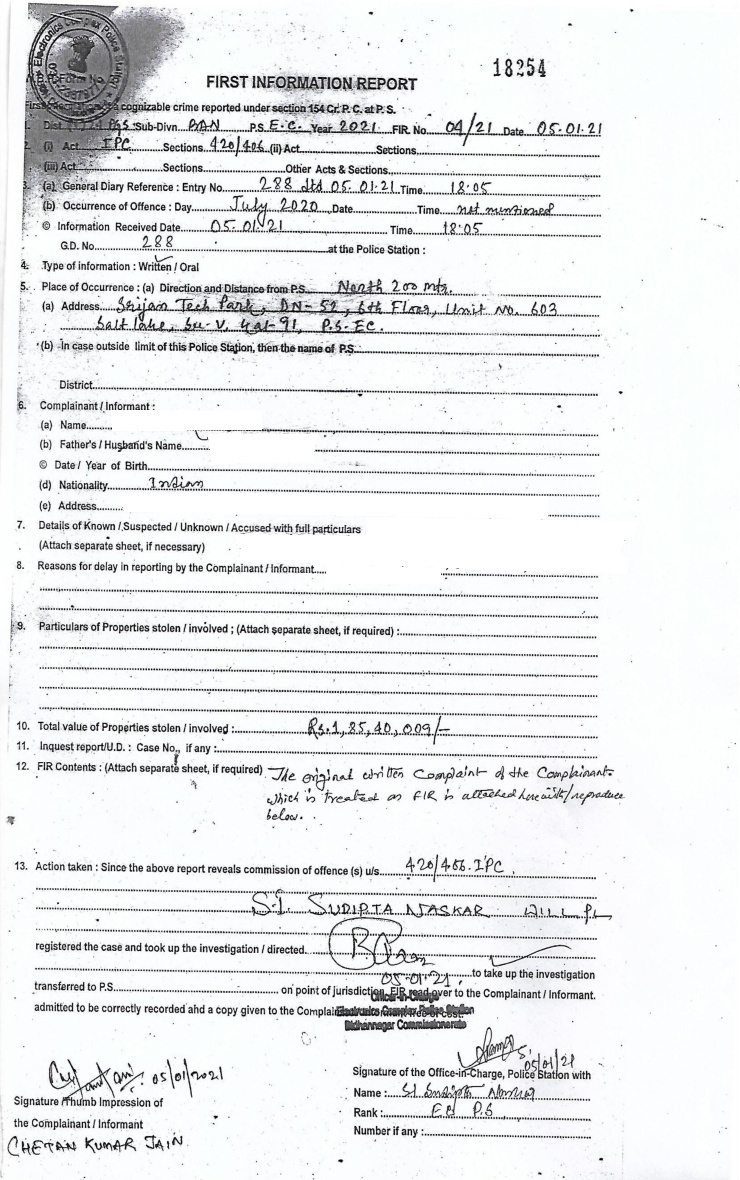 18254
FIRST INFORMATION REPORT
cognizable crime reported under section 154 Cr. P. C. at P. S.
Sub-Divn. P.S. E.C. Year 2021 FIR. No. 04/21 Date 05.01.21
2. (i) Act IPC Sections 420/406 (ii) Act Sections
(iii) Act Sections Other Acts & Sections
3. (a) General Diary Reference : Entry No. 288 dtd 05.01.21 Time 18:05
(b) Occurrence of Offence : Day July 2020 Date Time not mentioned
© Information Received Date 05.01.21 Time 18:05
G.D. No. 288 at the Police Station :
4. Type of information : Written / Oral
5. Place of Occurrence : (a) Direction and Distance from P.S. North 200 mtr.
(a) Address Srijan Tech Park, DN-52, 6th Floor, Unit No. 603
Salt Lake, Sec-V, Kol-91, P.S-EC.
(b) In case outside limit of this Police Station, then the name of P.S.
District
6. Complainant / Informant :
(a) Name
(b) Father's / Husband's Name
© Date / Year of Birth
(d) Nationality Indian
(e) Address
7. Details of Known / Suspected / Unknown / Accused with full particulars
(Attach separate sheet, if necessary)
8. Reasons for delay in reporting by the Complainant / Informant
9. Particulars of Properties stolen / involved ; (Attach separate sheet, if required) :
10. Total value of Properties stolen / involved : Rs. 1,85,40,009/-
11. Inquest report/U.D. : Case No., if any :
12. FIR Contents : (Attach separate sheet, if required) The original written Complaint of the Complainant
which is treated as FIR is attached herewith/reproduce
below.
13. Action taken : Since the above report reveals commission of offence (s) u/s 420/406 IPC.
S.I. SUDIPTA NASKAR WILL PL
registered the case and took up the investigation / directed
05.01.21. to take up the investigation
transferred to P.S. on point of jurisdiction, FIR read over to the Complainant / Informant.
Officer-in-Charge
admitted to be correctly recorded and a copy given to the Complainant
Electronics Complex Police Station
Bidhannagar Commissionerate
05/01/21
05/01/2021
Signature of the Office-in-Charge, Police Station with
Signature / Thumb Impression of
Name : SI Sudipta Naskar
the Complainant / Informant
Rank : P.S
CHETAN KUMAR JAIN
Number if any :